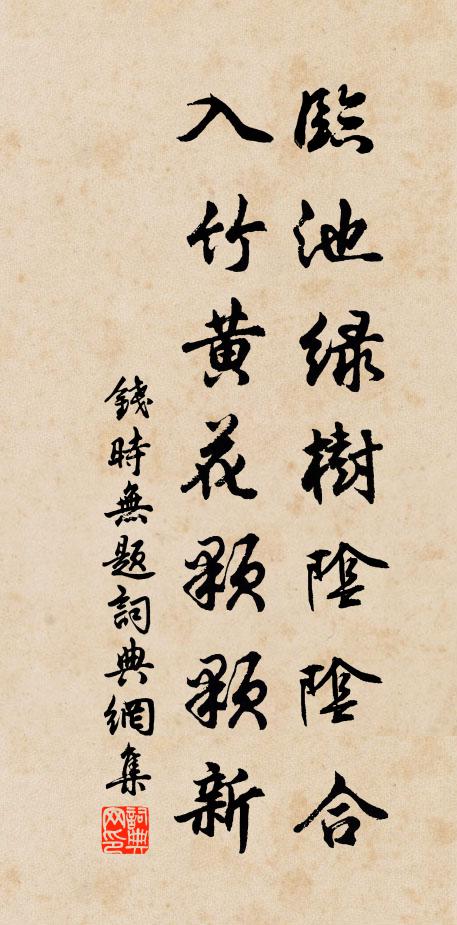 臨池綠樹陰陰合
入竹黄花顆顆新
錢時無題詞典網集
詞典网印